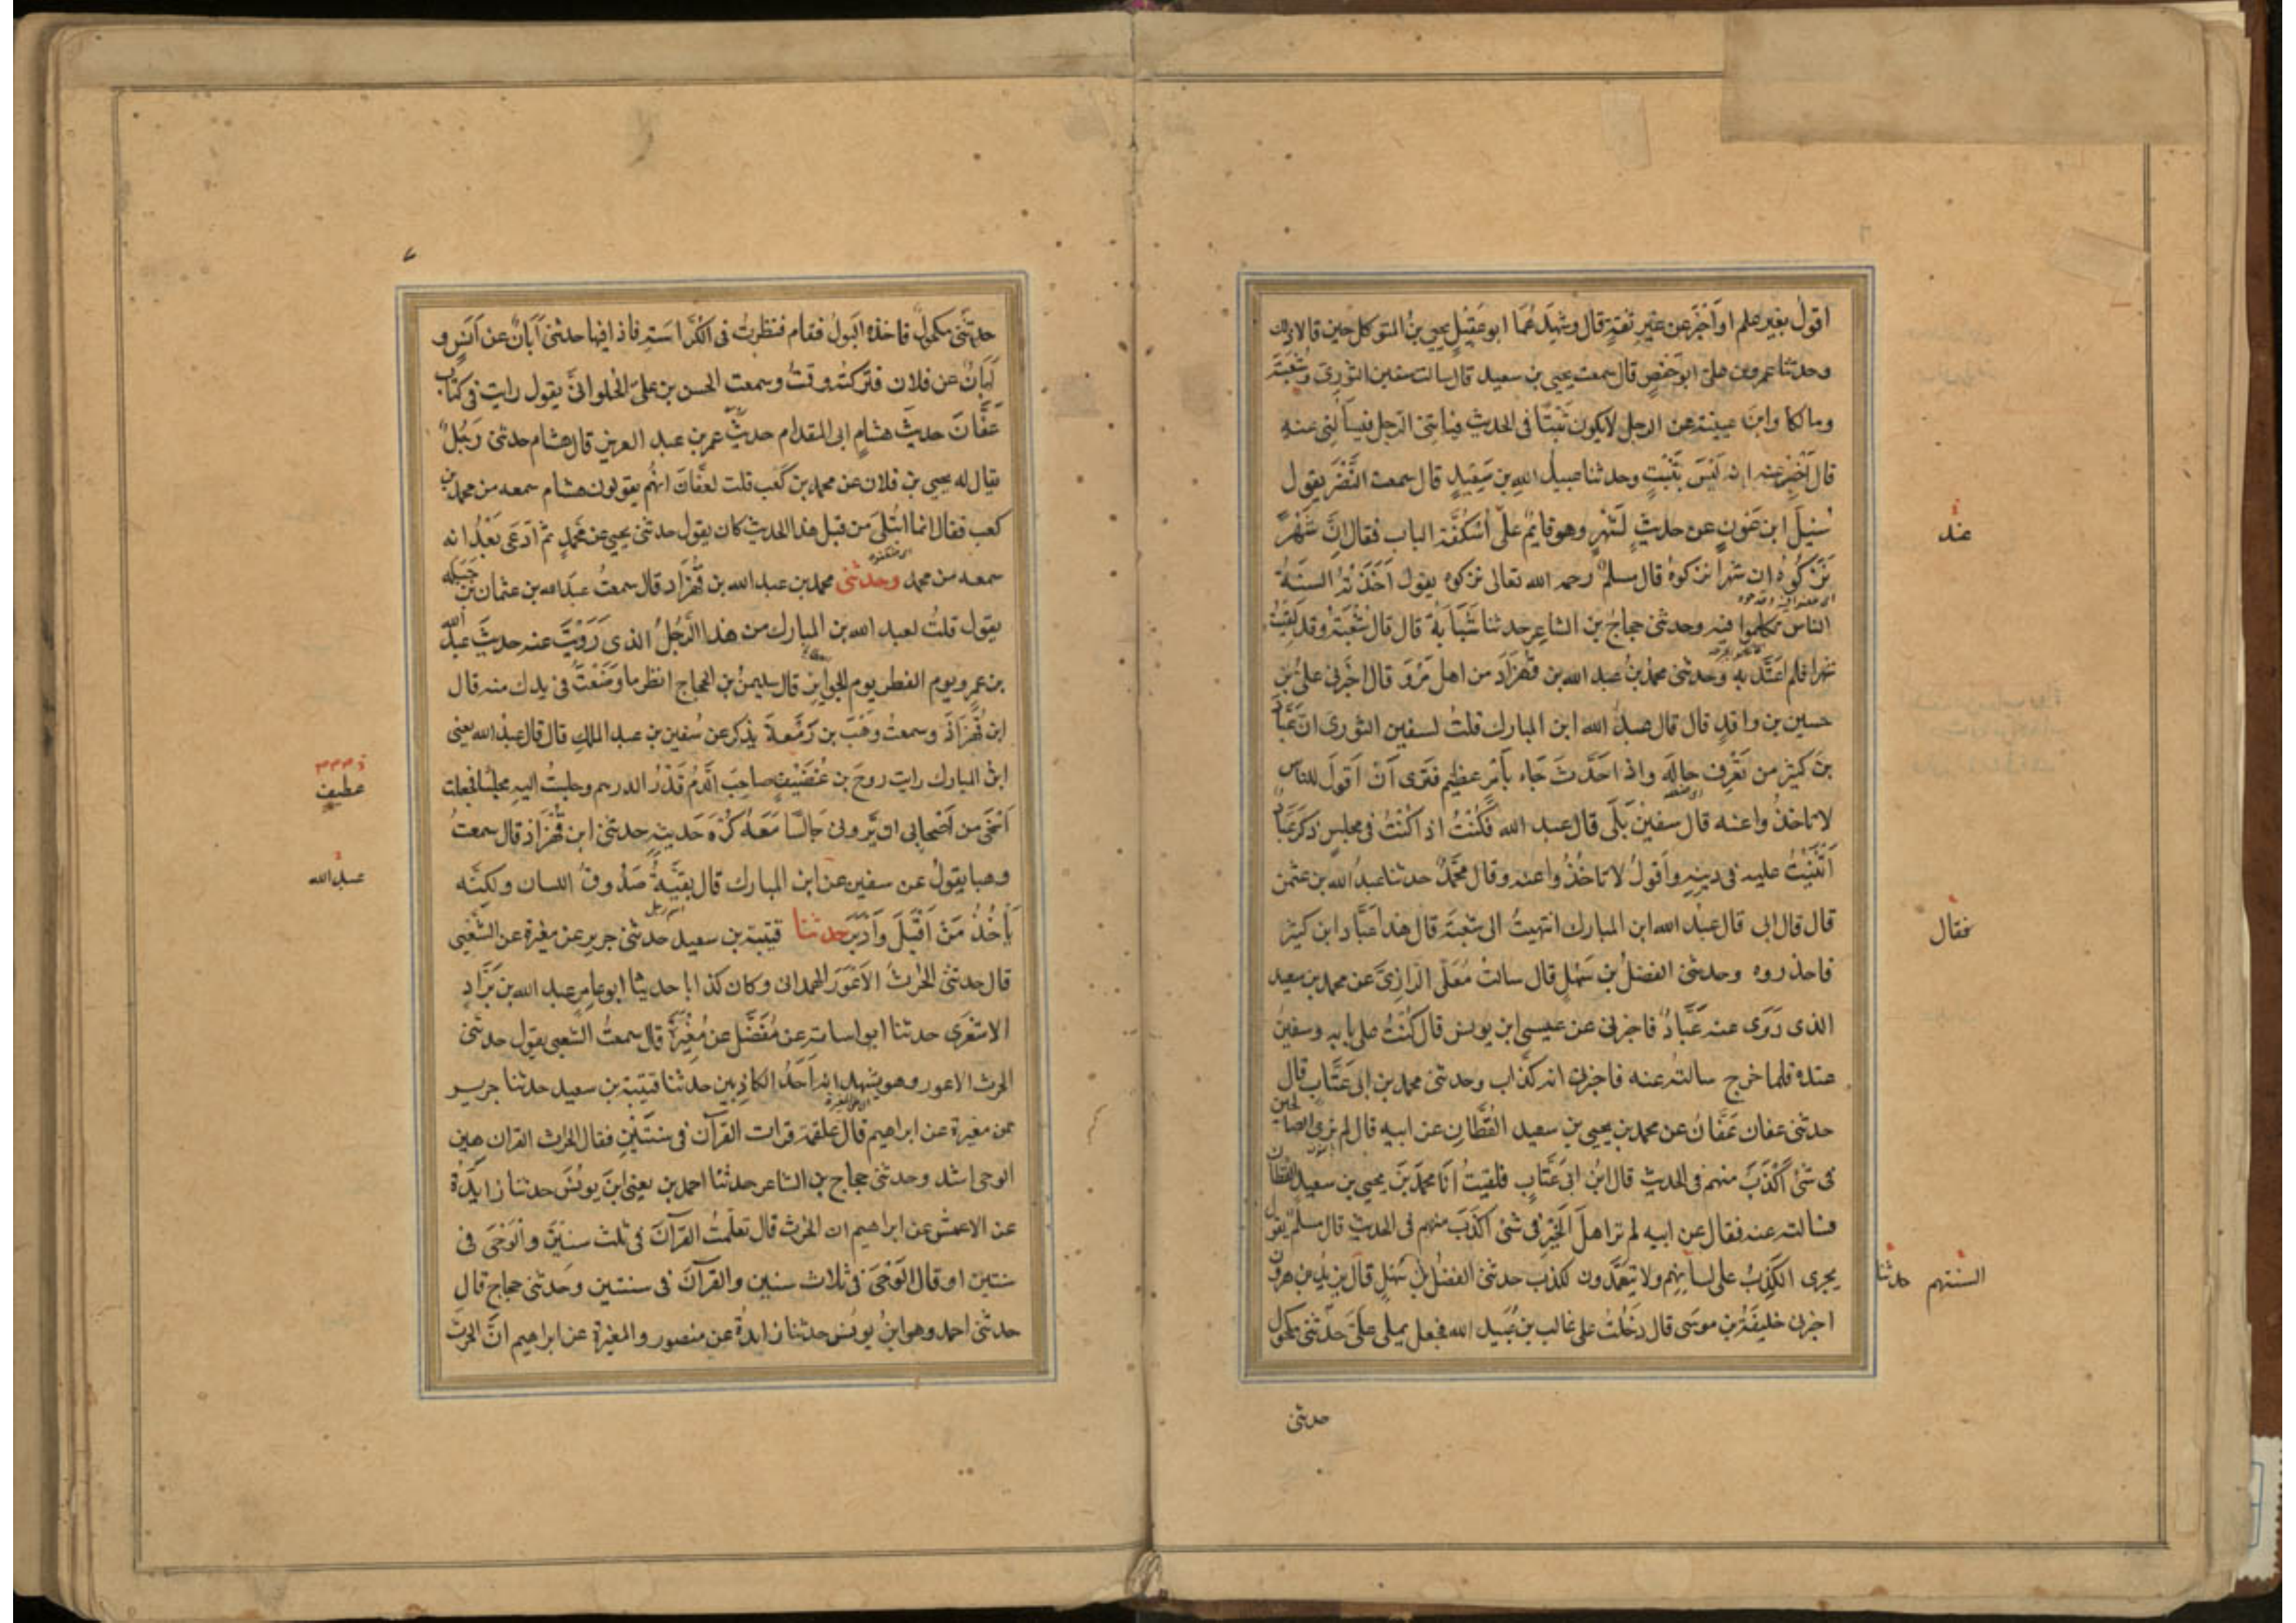 اقول بغير علم او اخبر عن غير ثقة قال وشهدهما ابو عقيل يحيى بن المتوكل حين قالا ذلك
وحدثنا عمرو بن على ابو حفص قال سمعت يحيى بن سعيد قال سالت سفين الثورى وشعبة
ومالكا وابن عيينة عن الرجل لا يكون ثبتا فى الحديث فياتنى الرجل فيسألنى عنه
قال اخبر عنه انه ليس بثبت وحدثنا عبيد الله بن سعيد قال سمعت النضر يقول
سئل ابن عون عن حديث لشهر وهو قايم على اسكفة الباب فقال ان شهرا
نزكوه ان شهرا نزكوه قال مسلم رحمه الله تعالى نزكوه يقول اخذته السنة
الناس تكلموا فيه وحدثنى حجاج بن الشاعر حدثنا شبابة قال قال شعبة وقد لقيت
شهرا فلم اعتد به وحدثنى محمد بن عبد الله بن قهزاذ من اهل مرو قال اخبرنى على بن
حسين بن واقد قال قال عبد الله ابن المبارك قلت لسفين الثورى ان عباد
بن كثير من تعرف حاله واذا حدث جاء بأمر عظيم فترى ان اقول للناس
لا تاخذوا عنه قال سفين بلى قال عبد الله فكنت اذا كنت فى مجلس ذكر عباد
اثنيت عليه فى دينه واقول لا تاخذوا عنه وقال محمد حدثنا عبد الله بن عثمن
قال قال ابى قال عبد الله ابن المبارك انتهيت الى شعبة قال هذا عباد ابن كثير
فاحذروه وحدثنى الفضل بن سهل قال سالت معلى الرازى عن محمد بن سعيد
الذى روى عنه عباد فاخبرنى عن عيسى ابن يونس قال كنت على بابه وسفين
عنده فلما خرج سالته عنه فاخبرنى انه كذاب وحدثنى محمد بن ابى عتاب قال
حدثنى عفان عفان عن محمد بن يحيى بن سعيد القطان عن ابيه قال لم نرى الصالحين
فى شئ اكذب منهم فى الحديث قال ابن ابى عتاب فلقيت انا محمد بن يحيى بن سعيد القطان
فسالته عنه فقال عن ابيه لم تر اهل الخير فى شئ اكذب منهم فى الحديث قال مسلم يقول
يجرى الكذب على لسانهم ولا يتعمدون لكذب حدثنى الفضل بن سهل قال يزيد بن هرون
اخبرنى خليفة بن موسى قال دخلت على غالب بن عبيد الله فجعل يملى على حدثنى مكحول
حدثنى
عند
فقال
السنتهم حدثنا
٧
حدثنى مكحول فاخذه البول فقام فنظرت فى الكراسة فاذا فيها حدثنى ابان عن انس و
ابان عن فلان فتركته وقمت وسمعت الحسن بن على الحلوانى يقول رايت فى كتاب
عفان حديث هشام ابى المقدام حديث عمر بن عبد العزيز قال هشام حدثنى رجل
يقال له يحيى بن فلان عن محمد بن كعب قلت لعفان انهم يقولون هشام سمعه من محمد بن
كعب فقال انما ابتلى من قبل هذا الحديث كان يقول حدثنى يحيى عن محمد ثم ادعى بعد انه
سمعه من محمد وحدثنى محمد بن عبد الله بن قهزاذ قال سمعت عبد الله بن عثمان بن جبله
يقول قلت لعبد الله بن المبارك من هذا الرجل الذى رويت عنه حديث عبد الله
بن عمرو يوم الفطر يوم الجوايز قال سليمن بن الحجاج انظر ما وضعت فى يدك منه قال
ابن قهزاذ وسمعت وهب بن زمعة يذكر عن سفين بن عبد الملك قال قال عبد الله يعنى
ابن المبارك رايت روح بن غضيف صاحب الدم قدر الدرهم وجلست اليه مجلسا فجعلت
استحى من اصحابى ان يرونى جالسا معه كره حديثه حدثنى ابن قهزاذ قال سمعت
وهبا يقول عن سفين عن ابن المبارك قال بقية صدوق اللسان ولكنه
يأخذ من اقبل وادبر حدثنا قتيبة بن سعيد حدثنى جرير عن مغيرة عن الشعبى
قال حدثنى الحرث الاعور الهمدانى وكان كذابا حدثنا ابو عامر عبد الله بن براد
الاشعرى حدثنا ابو اسامة عن مفضل عن مغيرة قال سمعت الشعبى يقول حدثنى
الحرث الاعور وهو يشهد انه احد الكاذبين حدثنا قتيبة بن سعيد حدثنا جرير
عن مغيرة عن ابراهيم قال علقمة قرات القرآن فى سنتين فقال الحرث القران هين
الوحى اشد وحدثنى حجاج بن الشاعر حدثنا احمد بن يعنى ابن يونس حدثنا زايدة
عن الاعمش عن ابراهيم ان الحرث قال تعلمت القرآن فى ثلث سنين والوحى فى
سنتين او قال الوحى فى ثلاث سنين والقرآن فى سنتين وحدثنى حجاج قال
حدثنى احمد وهو ابن يونس حدثنا زايدة عن منصور والمغيرة عن ابراهيم ان الحرث
عطيف
عبد الله